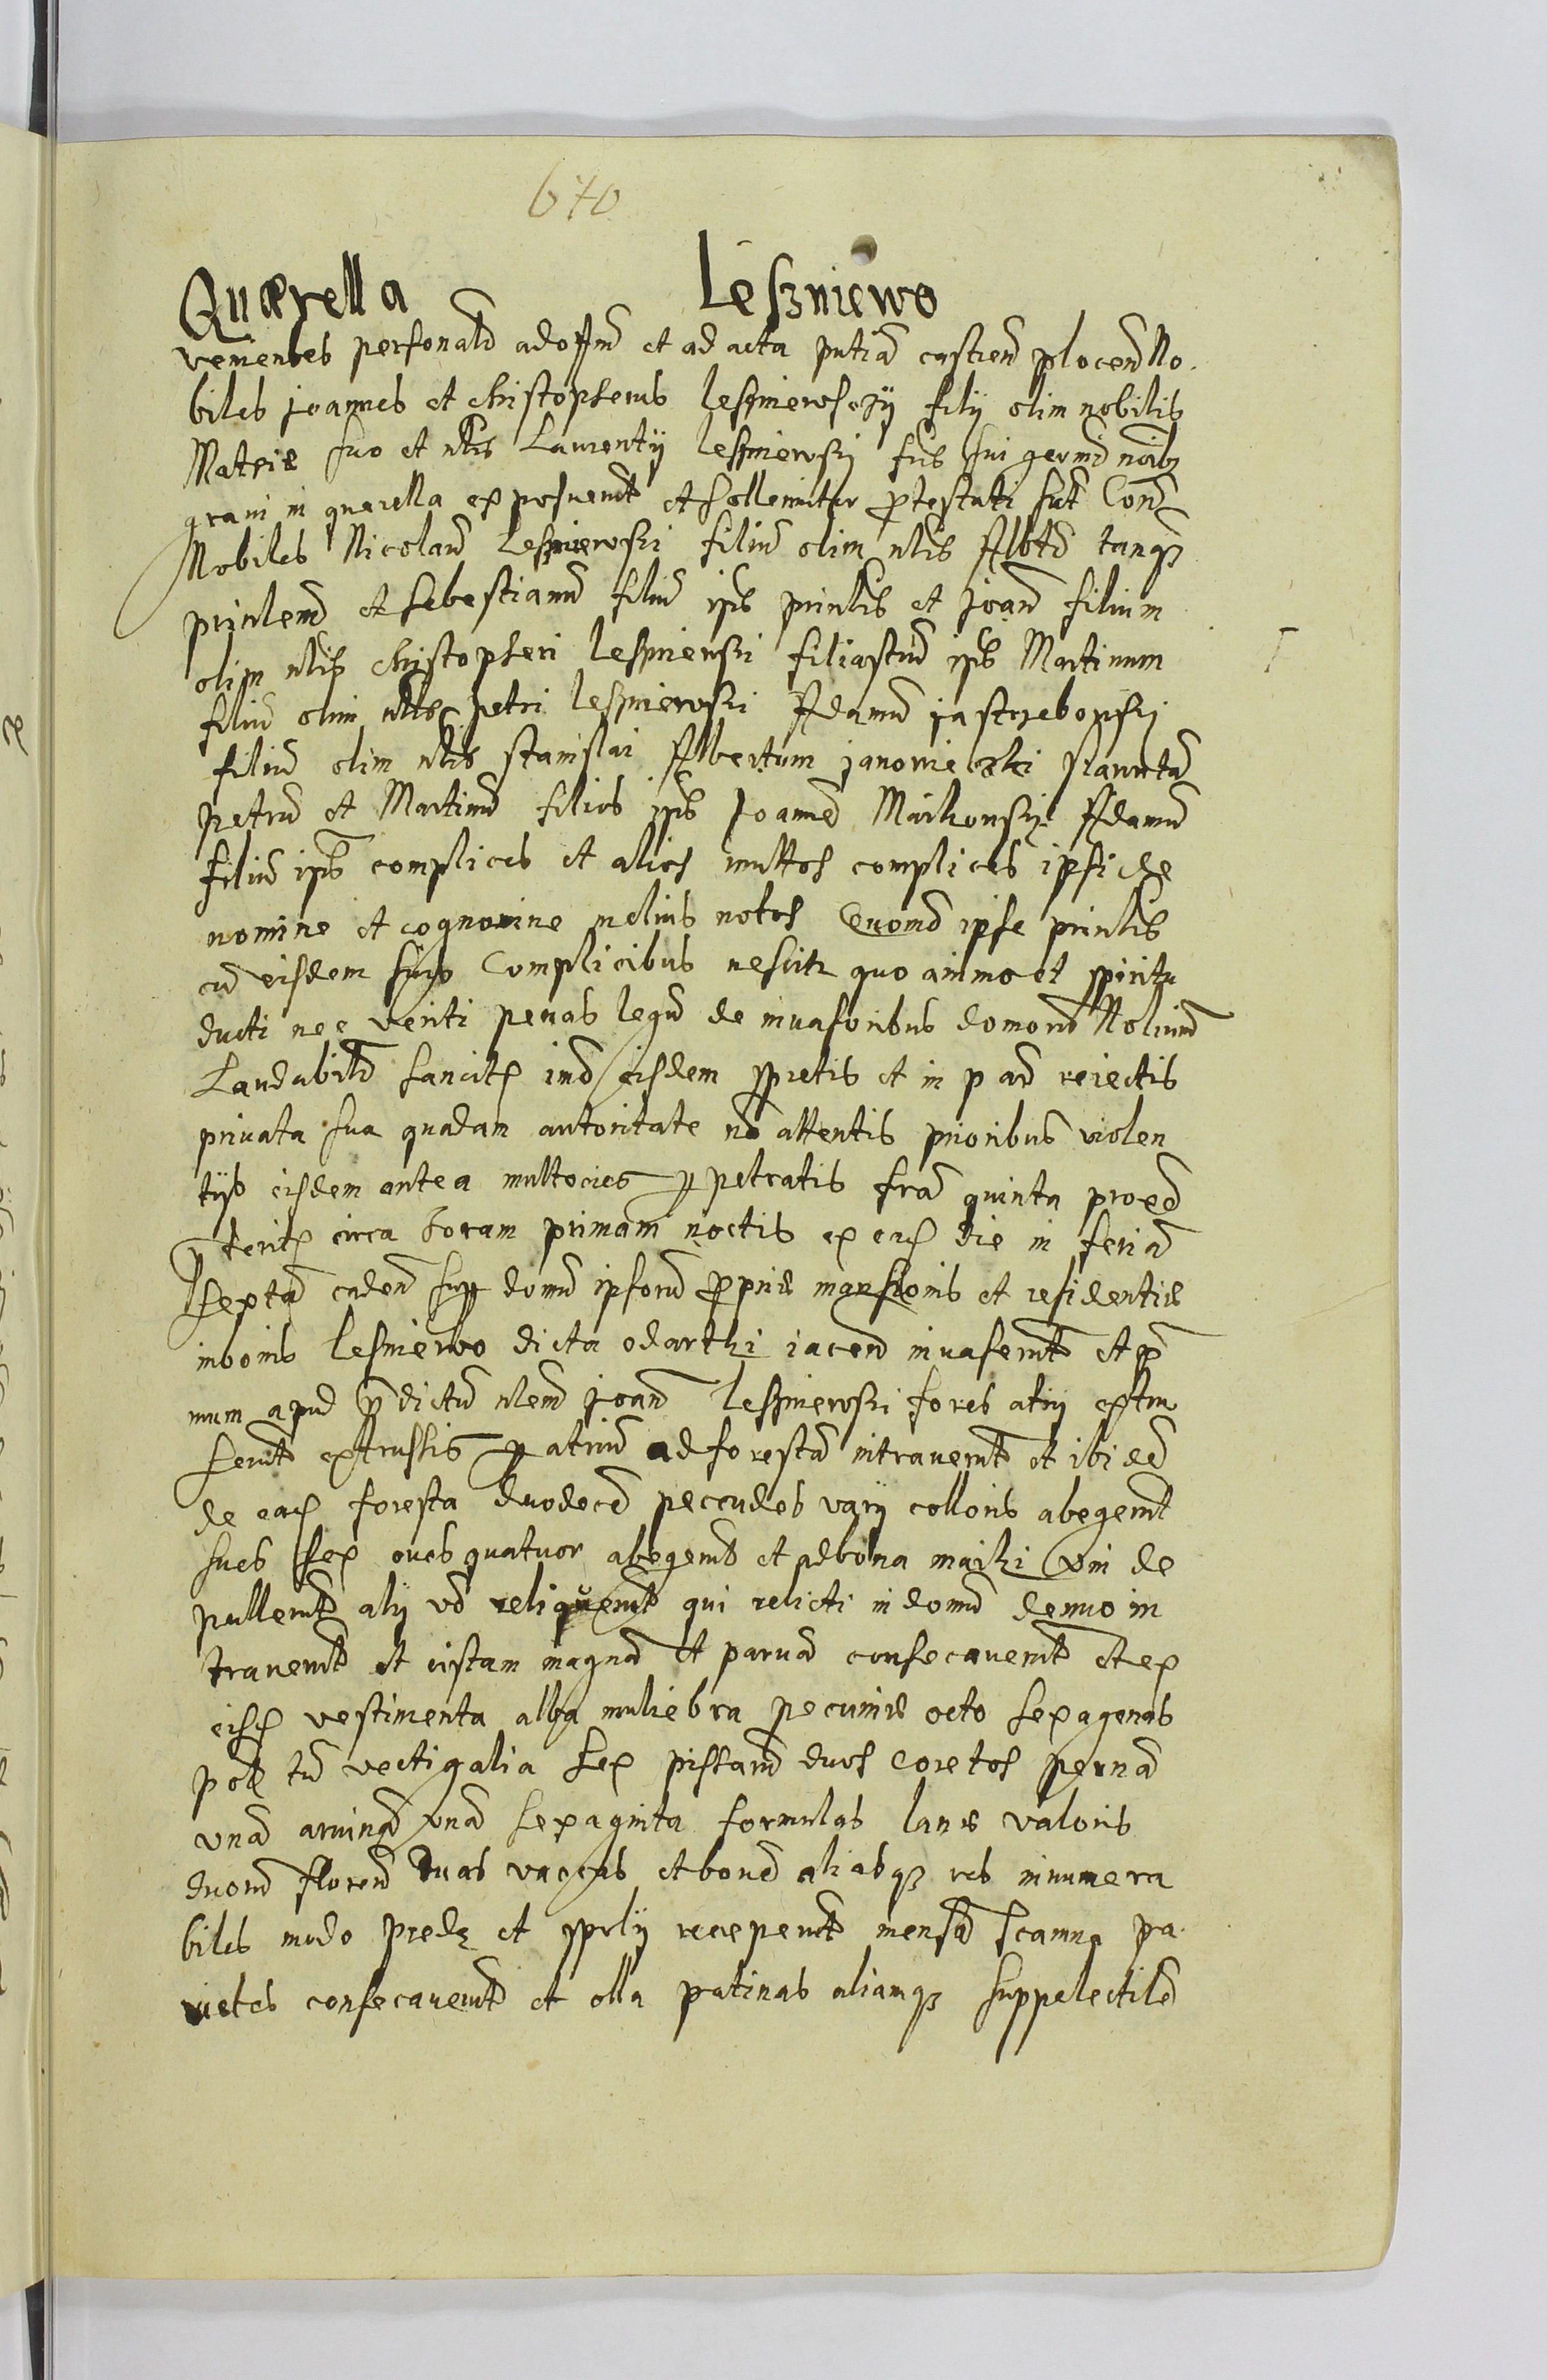 670
Quærella Leszniewo
venientes personalr ad offm et ad acta pntia castren plocen No.
biles joannes et christopherus leszniewsczÿ filÿ olim nobilis
Mateie suo et nlis Laurentÿ leszniewskj fris sui germa noib9
graui in quærella exposuerunt et sollenniter protestati sunt Con
Nobiles Nicolaum Leszniewski filium olim nlis Alberti tanq3
prinlem et sebestianum filium ips prinlis et joan filium
olim nlis christopheri lesznienski filiastrum ips Martinum
filium olim nlis petri leszniewski Adamum jastrzebouskj
filium olim nlis stanislai Albertum janowieczki
petrum et Martinum filios ips joannem Maikouskj Adamum
filium ips complices et alios multos complices ipsi de
nomine et cognomine melius notos Quomo ipse prinlis
cu eisdem suis Complicibus nescitr quo animo et spiritu
ducti nec veriti penas legum de inuasoribus domorum Nobilium
Laudabilr sancitas imo eisdem spretis et in parum reiectis
priuata sua quadam autoritate no attentis prioribus violen
tÿs eisdem antea multocies perpetratis fria quinta proxe
preterita circa horam primam noctis ex ea die in feriam
sextam caden supr domum ipsorum propriæ mansionis et residentiæ
in bonis lesniewo dicta odarthi iacen inuaserunt et pri
mum apud predictum nlem joan leszniewski fores atrÿ extru
serunt extrussis per atrium ad forestam intrauerunt et ibidem
de ea foresta duodecem peccudes varÿ colloris abegerunt
sues sex oues quatuor abegerunt et ad bona maiki vni de
pullerunt alÿ vo reliquerunt qui relicti in domum denuo in
trauerunt et cistam magnam et paruam consecauerunt et ex
eisdem vestimenta alba muliebra pecuniæ octo sexagenas
pol tum vectigalia sex pissarum duos coretos pernam
vnam aruinam vnam sexaginta formulas lanæ valoris
duorum floren duas vaccas et bouem aliasq3 res innumera
biles modo prede et spolÿ receperunt mensam scamna pa.
rietes consecauerunt et olla patinas aliamq3 suppelectilem